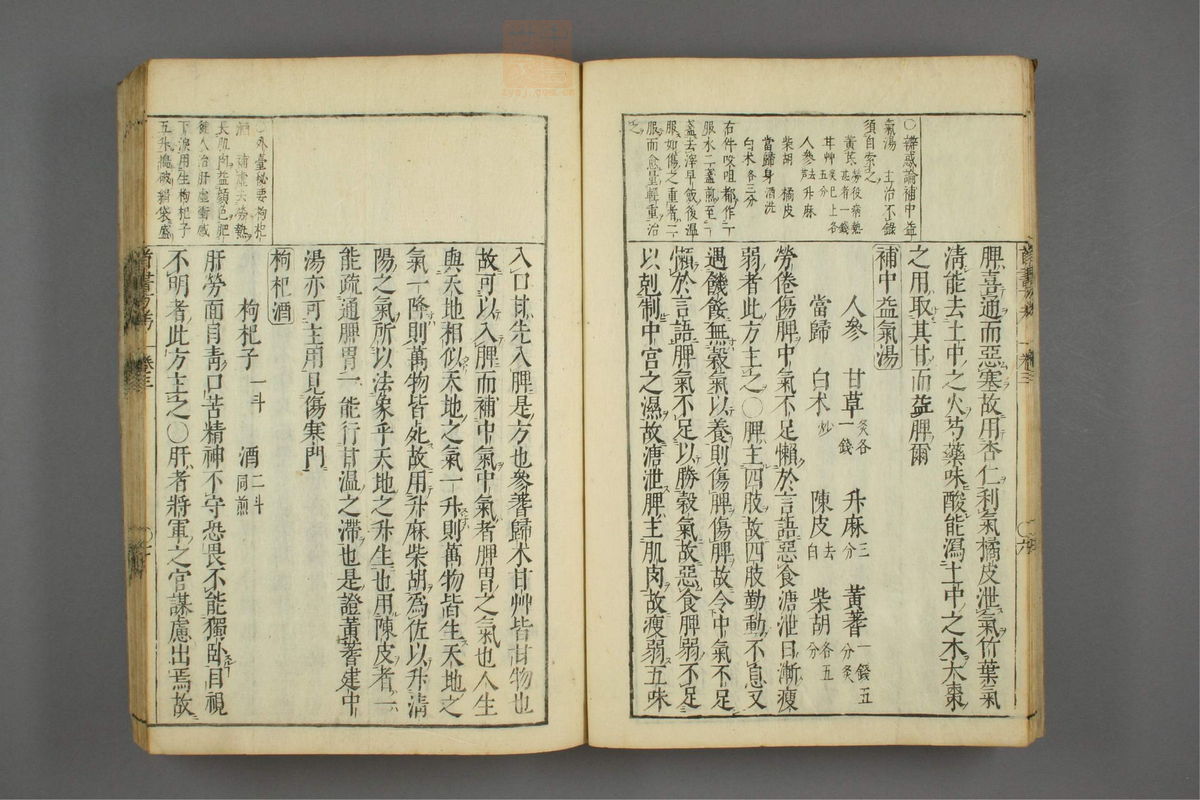 〇辨惑論補中益
氣湯 主治不錄
須自索之
黃芪 勞役病熱甚者一錢
甘艸 炙巳上各五分
人參 去芦 升麻
柴胡 橘皮
當歸身 酒洗
白朮 各三分
右件㕮咀都作一
服水二盞煎至一
盞去滓早飯後溫
服如傷之重者二
服而愈量輕重治
之
脾喜通而惡塞故用杏仁利氣橘皮泄氣竹葉氣
淸能去土中之火芍藥味酸能瀉土中之木大棗
之用取其甘而益脾爾
補中益氣湯
人參 甘草 炙各一錢 升麻 三分 黃蓍 一錢五分炙
當歸 白朮 炒 陳皮 去白 柴胡 各五分
勞倦傷脾中氣不足懶於言語惡食溏泄日漸瘦
弱者此方主之〇脾主四肢故四肢勤動不息又
遇饑餒無穀氣以養則傷脾傷脾故令中氣不足
懶於言語脾氣不足以勝穀氣故惡食脾弱不足
以剋制中宮之濕故溏泄脾主肌肉故瘦弱五味
首書 方考 卷三 〇六
入口甘先入脾是方也參蓍歸朮甘艸皆甘物也
故可以入脾而補中氣中氣者脾胃之氣也人生
與天地相似天地之氣一升則萬物皆生天地之
氣一降則萬物皆死故用升麻柴胡爲佐以升淸
陽之氣所以法象乎天地之升生也用陳皮者一
能疏通脾胃一能行甘溫之滯也是證黃蓍建中
湯亦可主用見傷寒門
枸杞酒
枸杞子 一斗 酒 二斗同煎
肝勞面目靑口苦精神不守恐畏不能獨臥目視
不明者此方主之〇肝者將軍之官謀慮出焉故
〇外臺秘要枸杞
酒 補虛去勞熱
長肌肉益顏色肥
健人治肝虛衝感
下淚用生枸杞子
五升搗破絹袋盛
首書方考 卷三